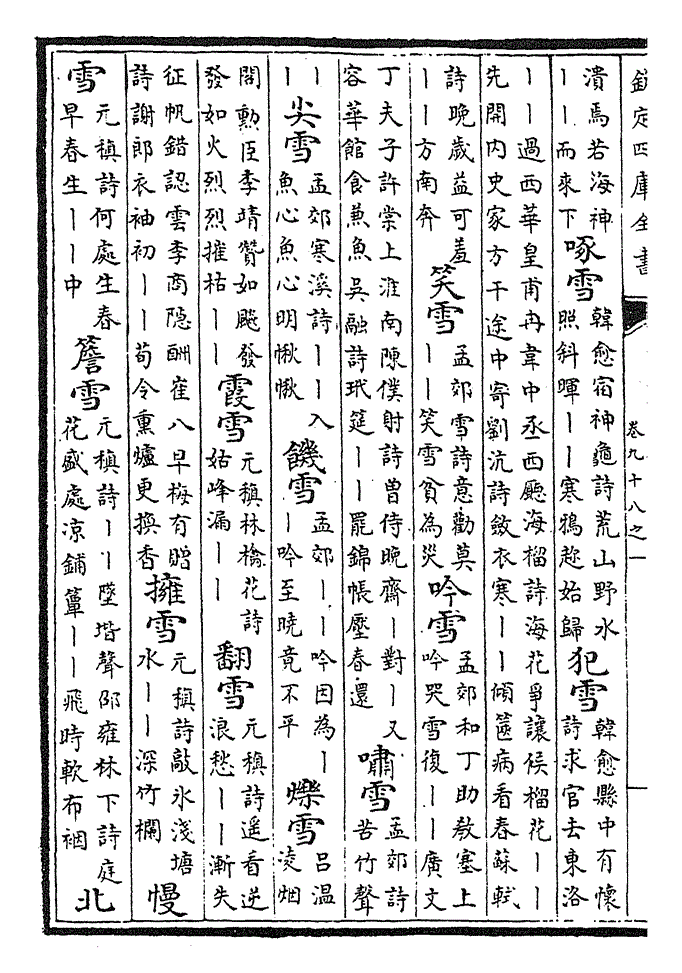 欽定四庫全書
卷九十八之一
潰焉若海神
丨丨而來下
啄雪
韓愈宿神龜詩荒山野水
照斜暉丨丨寒鴉趂始歸
犯雪
韓愈縣中有懷
詩求官去東洛
丨丨過西華皇甫冉韋中丞西廳海榴詩海花爭讓候榴花丨丨
先開内史家方干途中寄劉沆詩斂衣寒丨丨傾篋病看春蘇軾
詩晚歲益可羞
丨丨方南奔
笑雪
孟郊雪詩意勸莫
丨丨笑雪貧為災
吟雪
孟郊和丁助教塞上
吟哭雪復丨丨廣文
丁夫子許棠上淮南陳僕射詩曽侍晚齋丨對丨又
容華館食兼魚吳融詩玳筵丨丨罷錦帳壓春還
嘯雪
孟郊詩
苦竹聲
丨
丨
尖雪
孟郊寒溪詩丨丨入
魚心魚心明愀愀
饑雪
孟郊丨丨吟因為丨
丨吟至曉竟不平
爍雪
呂温
淩烟
閣勲臣李靖贊如飈發
發如火烈烈摧枯丨丨
霞雪
元稹林檎花詩
姑峰漏丨丨
翻雪
元稹詩遥看逆
浪愁丨丨漸失
征帆錯認雲李商隐酬崔八早梅有贈
詩謝郎衣袖初丨丨荀令熏爐更換香
擁雪
元稹詩敲氷淺塘
水丨丨深竹欄
慢
雪
元稹詩何處生春
早春生丨丨中
簷雪
元稹詩丨丨墜堦聲邵雍林下詩庭
花盛處凉鋪簟丨丨飛時軟布裀
北